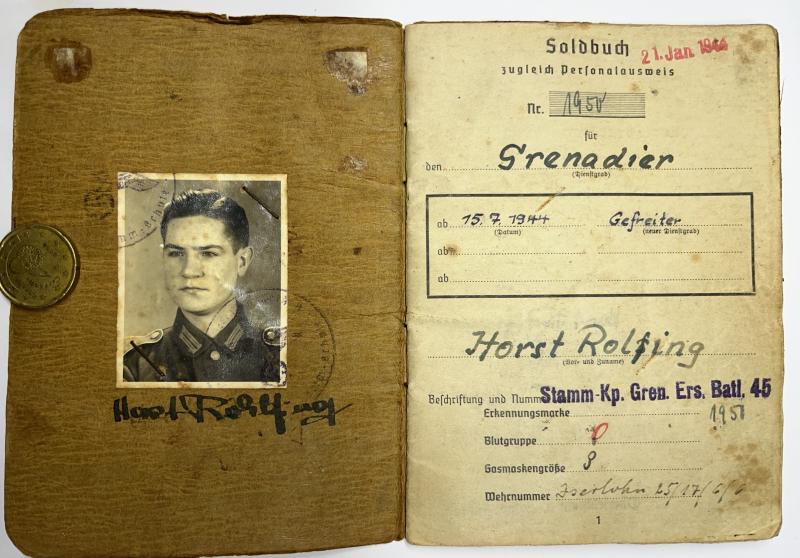 Horst Rohlfing
Soldbuch
21. Jan. 1944
zugleich Personalausweis
Nr. 1950
für
den Grenadier
(Dienstgrad)
ab 15.7.1944 Gefreiter
(Datum) (neuer Dienstgrad)
ab
ab
Horst Rolfing
(Vor- und Zuname)
Beschriftung und Numm Stamm-Kp. Gren. Ers. Batl. 45
Erkennungsmarke 1950
Blutgruppe 0
Gasmaskengröße
Wehrnummer Iserlohn 25/17/6/6
1